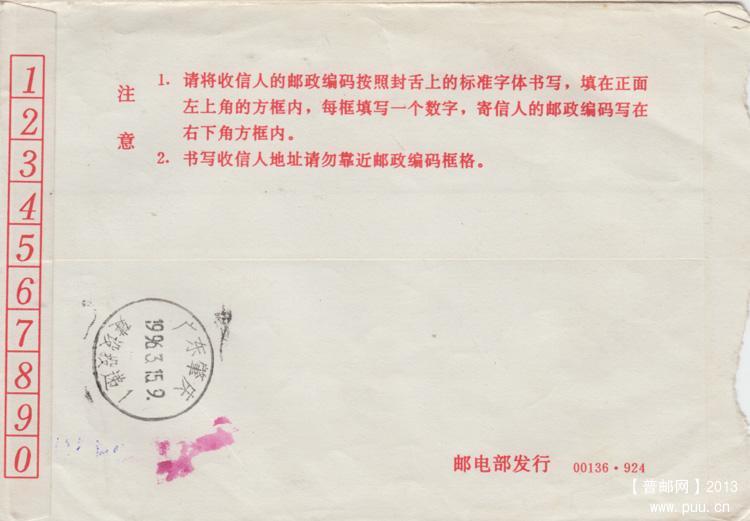 1
2
3
4
5
6
7
8
9
0
注意
1. 请将收信人的邮政编码按照封舌上的标准字体书写，填在正面
左上角的方框内，每框填写一个数字，寄信人的邮政编码写在
右下角方框内。
2. 书写收信人地址请勿靠近邮政编码框格。
广东肇庆
1996.3.15.9.
邮电部发行 00136·924
【普邮网】2013
www.puu.cn